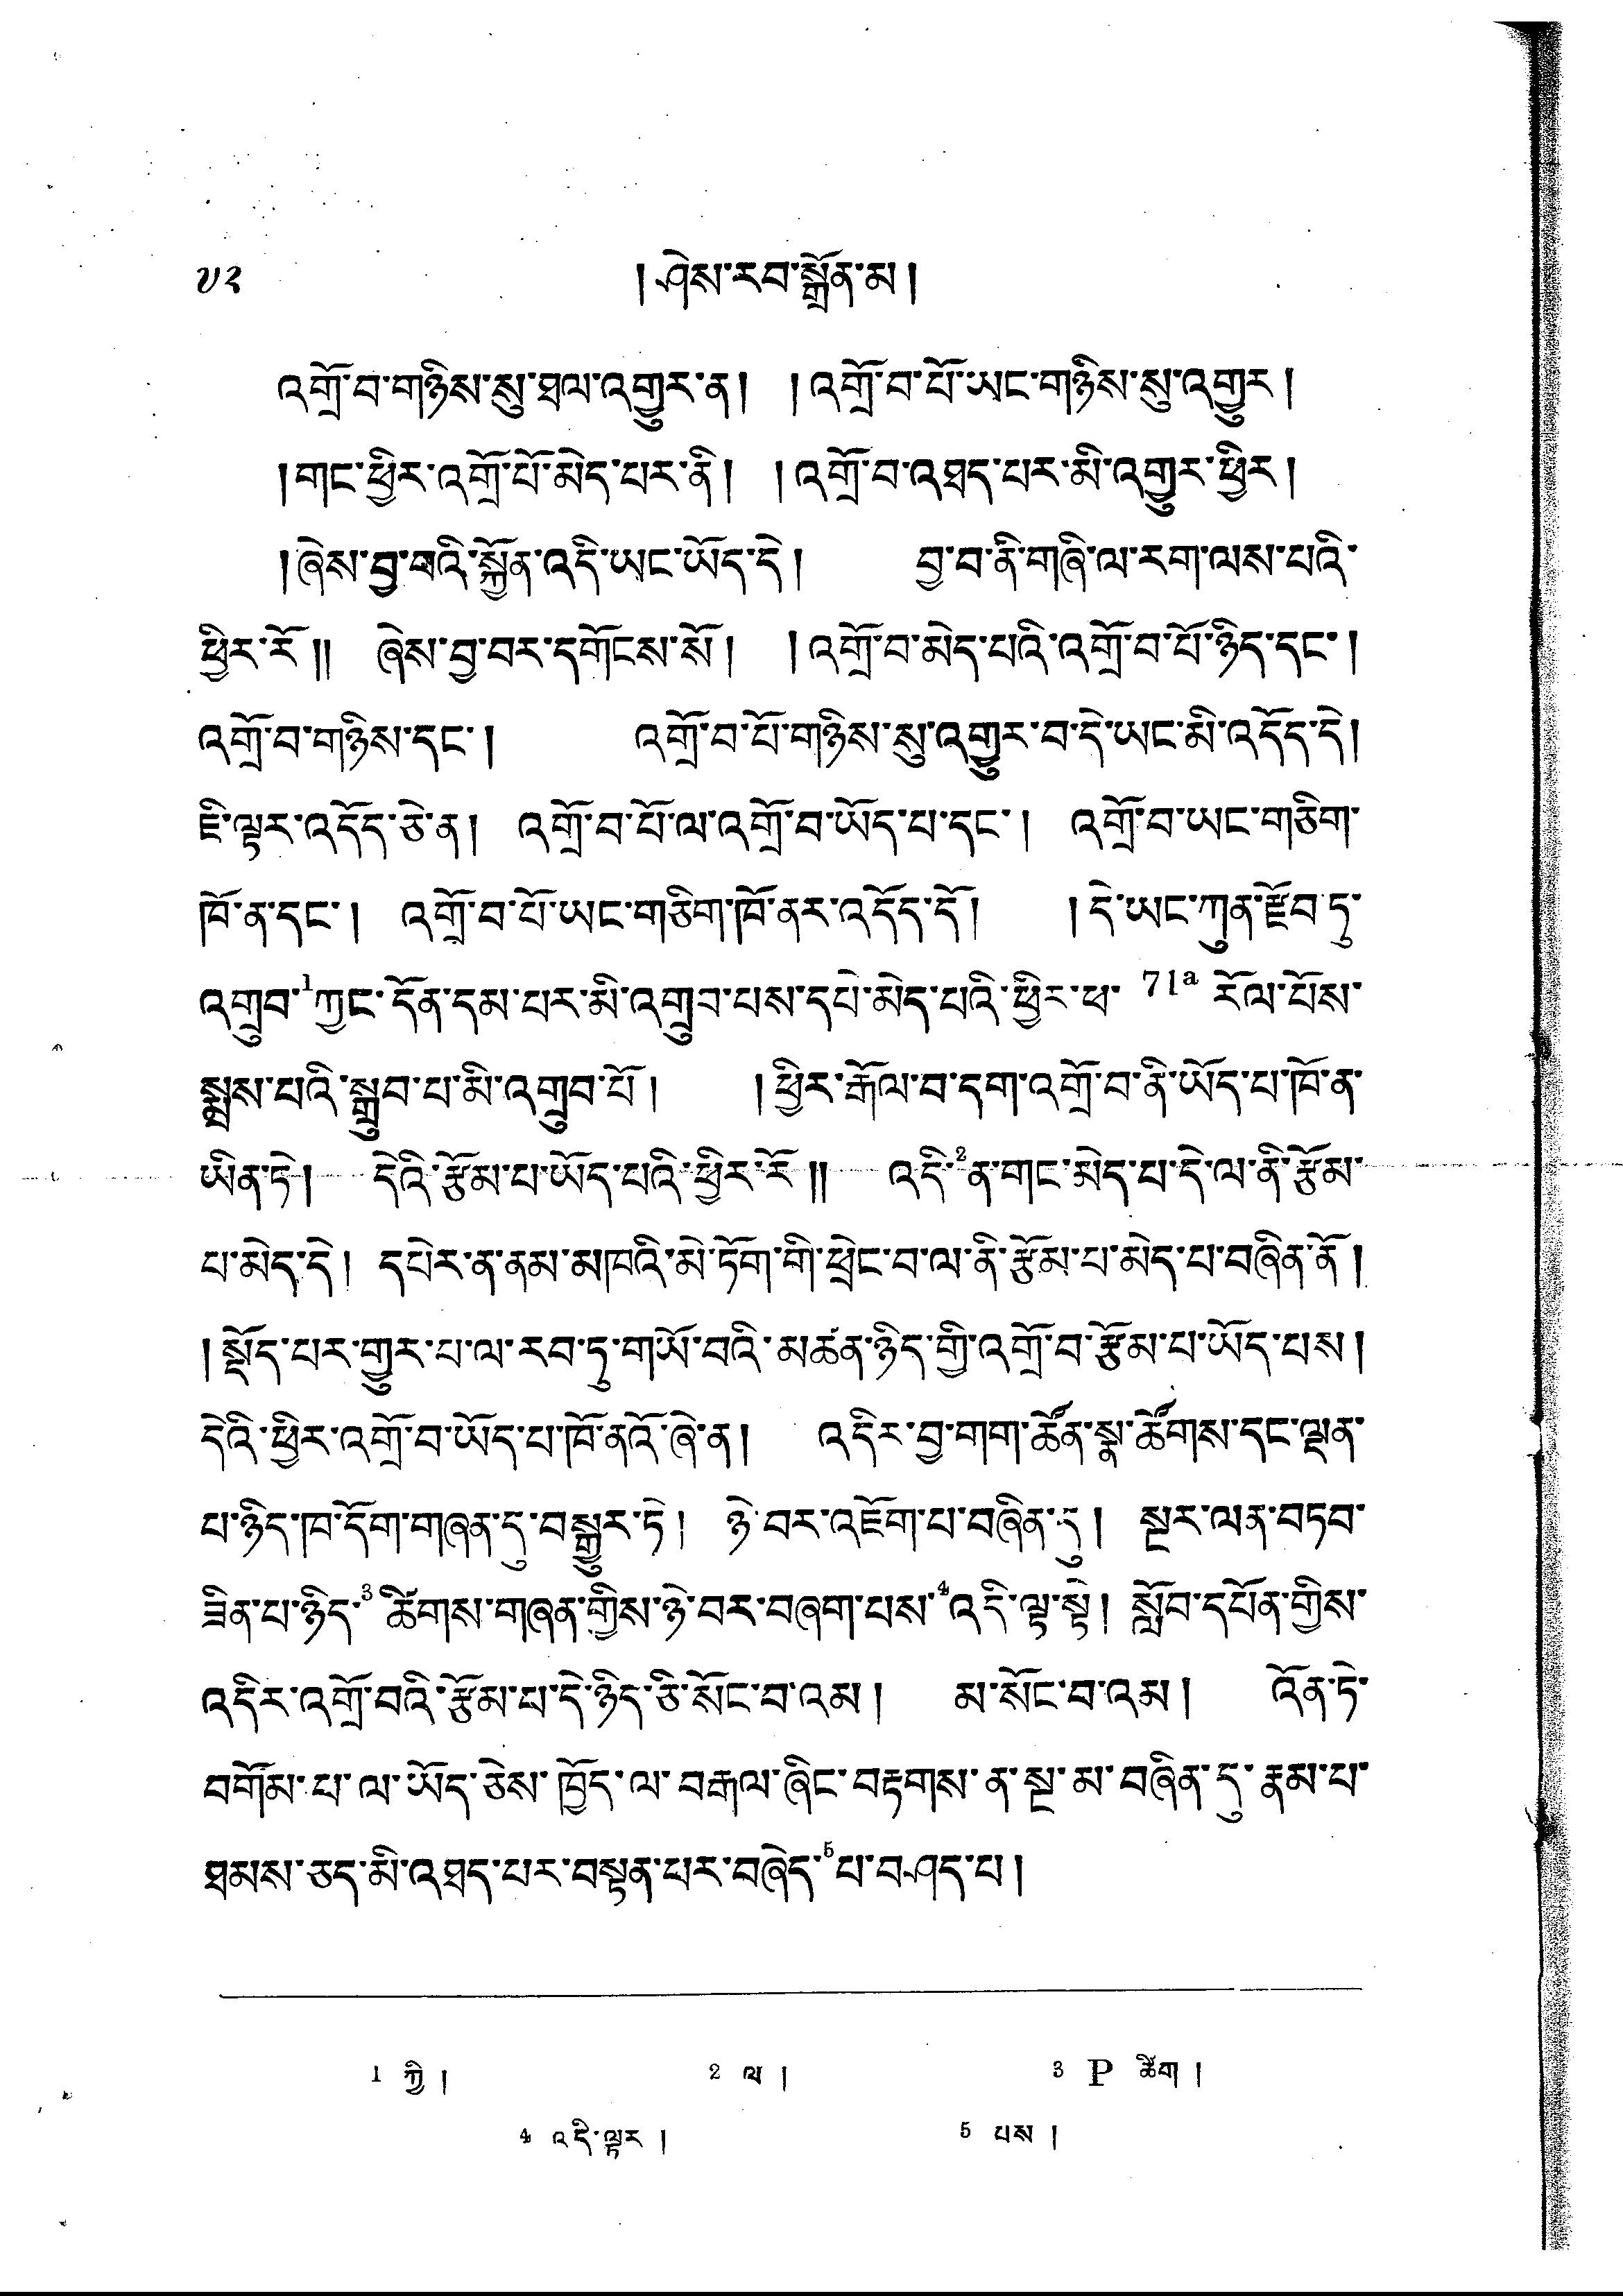 ༥༢ །ཤེས་རབ་སྒྲོན་མ།
འགྲོ་བ་གཉིས་སུ་ཐལ་འགྱུར་ན། །འགྲོ་བ་པོ་ཡང་གཉིས་སུ་འགྱུར།
།གང་ཕྱིར་འགྲོ་པོ་མེད་པར་ནི། །འགྲོ་བ་འཐད་པར་མི་འགྱུར་ཕྱིར།
།ཞེས་བྱ་བའི་སྐྱོན་འདི་ཡང་ཡོད་དེ། བྱ་བ་ནི་གཞི་ལ་རག་ལས་པའི་
ཕྱིར་རོ༎ ཞེས་བྱ་བར་དགོངས་སོ། །འགྲོ་བ་མེད་པའི་འགྲོ་བ་པོ་ཉིད་དང་།
འགྲོ་བ་གཉིས་དང་། འགྲོ་བ་པོ་གཉིས་སུ་འགྱུར་བ་དེ་ཡང་མི་འདོད་དེ།
ཇི་ལྟར་འདོད་ཅེ་ན། འགྲོ་བ་པོ་ལ་འགྲོ་བ་ཡོད་པ་དང་། འགྲོ་བ་ཡང་གཅིག་
ཁོ་ན་དང་། འགྲོ་བ་པོ་ཡང་གཅིག་ཁོ་ནར་འདོད་དོ། །དེ་ཡང་ཀུན་རྫོབ་ཏུ་
འགྲུབ་¹ཀྱང་དོན་དམ་པར་མི་འགྲུབ་པས་དཔེ་མེད་པའི་ཕྱིར་ཕ་ 71ᵃ རོལ་པོས་
སྨྲས་པའི་སྒྲུབ་པ་མི་འགྲུབ་པོ། །ཕྱིར་རྒོལ་བ་དག་འགྲོ་བ་ནི་ཡོད་པ་ཁོ་ན་
ཡིན་ཏེ། དེའི་རྩོམ་པ་ཡོད་པའི་ཕྱིར་རོ༎ འདི་²ན་གང་མེད་པ་དེ་ལ་ནི་རྩོམ་
པ་མེད་དེ། དཔེར་ན་ནམ་མཁའི་མེ་ཏོག་གི་ཕྲེང་བ་ལ་ནི་རྩོམ་པ་མེད་པ་བཞིན་ནོ།
།སྡོད་པར་གྱུར་པ་ལ་རབ་ཏུ་གཡོ་བའི་མཚན་ཉིད་ཀྱི་འགྲོ་བ་རྩོམ་པ་ཡོད་པས།
དེའི་ཕྱིར་འགྲོ་བ་ཡོད་པ་ཁོ་ནའོ་ཞེ་ན། འདིར་བྱ་གག་ཚོན་སྣ་ཚོགས་དང་ལྡན་
པ་ཉིད་ཁ་དོག་གཞན་དུ་བསྒྱུར་ཏེ། ཉེ་བར་འཇོག་པ་བཞིན་དུ། སྔར་ལན་བཏབ་
ཟིན་པ་ཉིད་³ ཚིགས་གཞན་གྱིས་ཉེ་བར་བཞག་པས་⁴འདི་ལྟ་སྟེ། སློབ་དཔོན་གྱིས་
འདིར་འགྲོ་བའི་རྩོམ་པ་དེ་ཉིད་ཅི་སོང་བ་འམ། མ་སོང་བ་འམ། འོན་ཏེ་
བགོམ་པ་ལ་ཡོད་ཅེས་ཁྱོད་ལ་བརྒལ་ཞིང་བརྟགས་ན་སྔ་མ་བཞིན་དུ་རྣམ་པ་
ཐམས་ཅད་མི་འཐད་པར་བསྟན་པར་བཞེད་⁵པ་བཤད་པ།
1 ཀྱི། 2 ལ། 3 P ཚིག།
4 འདི་ལྟར། 5 པས།